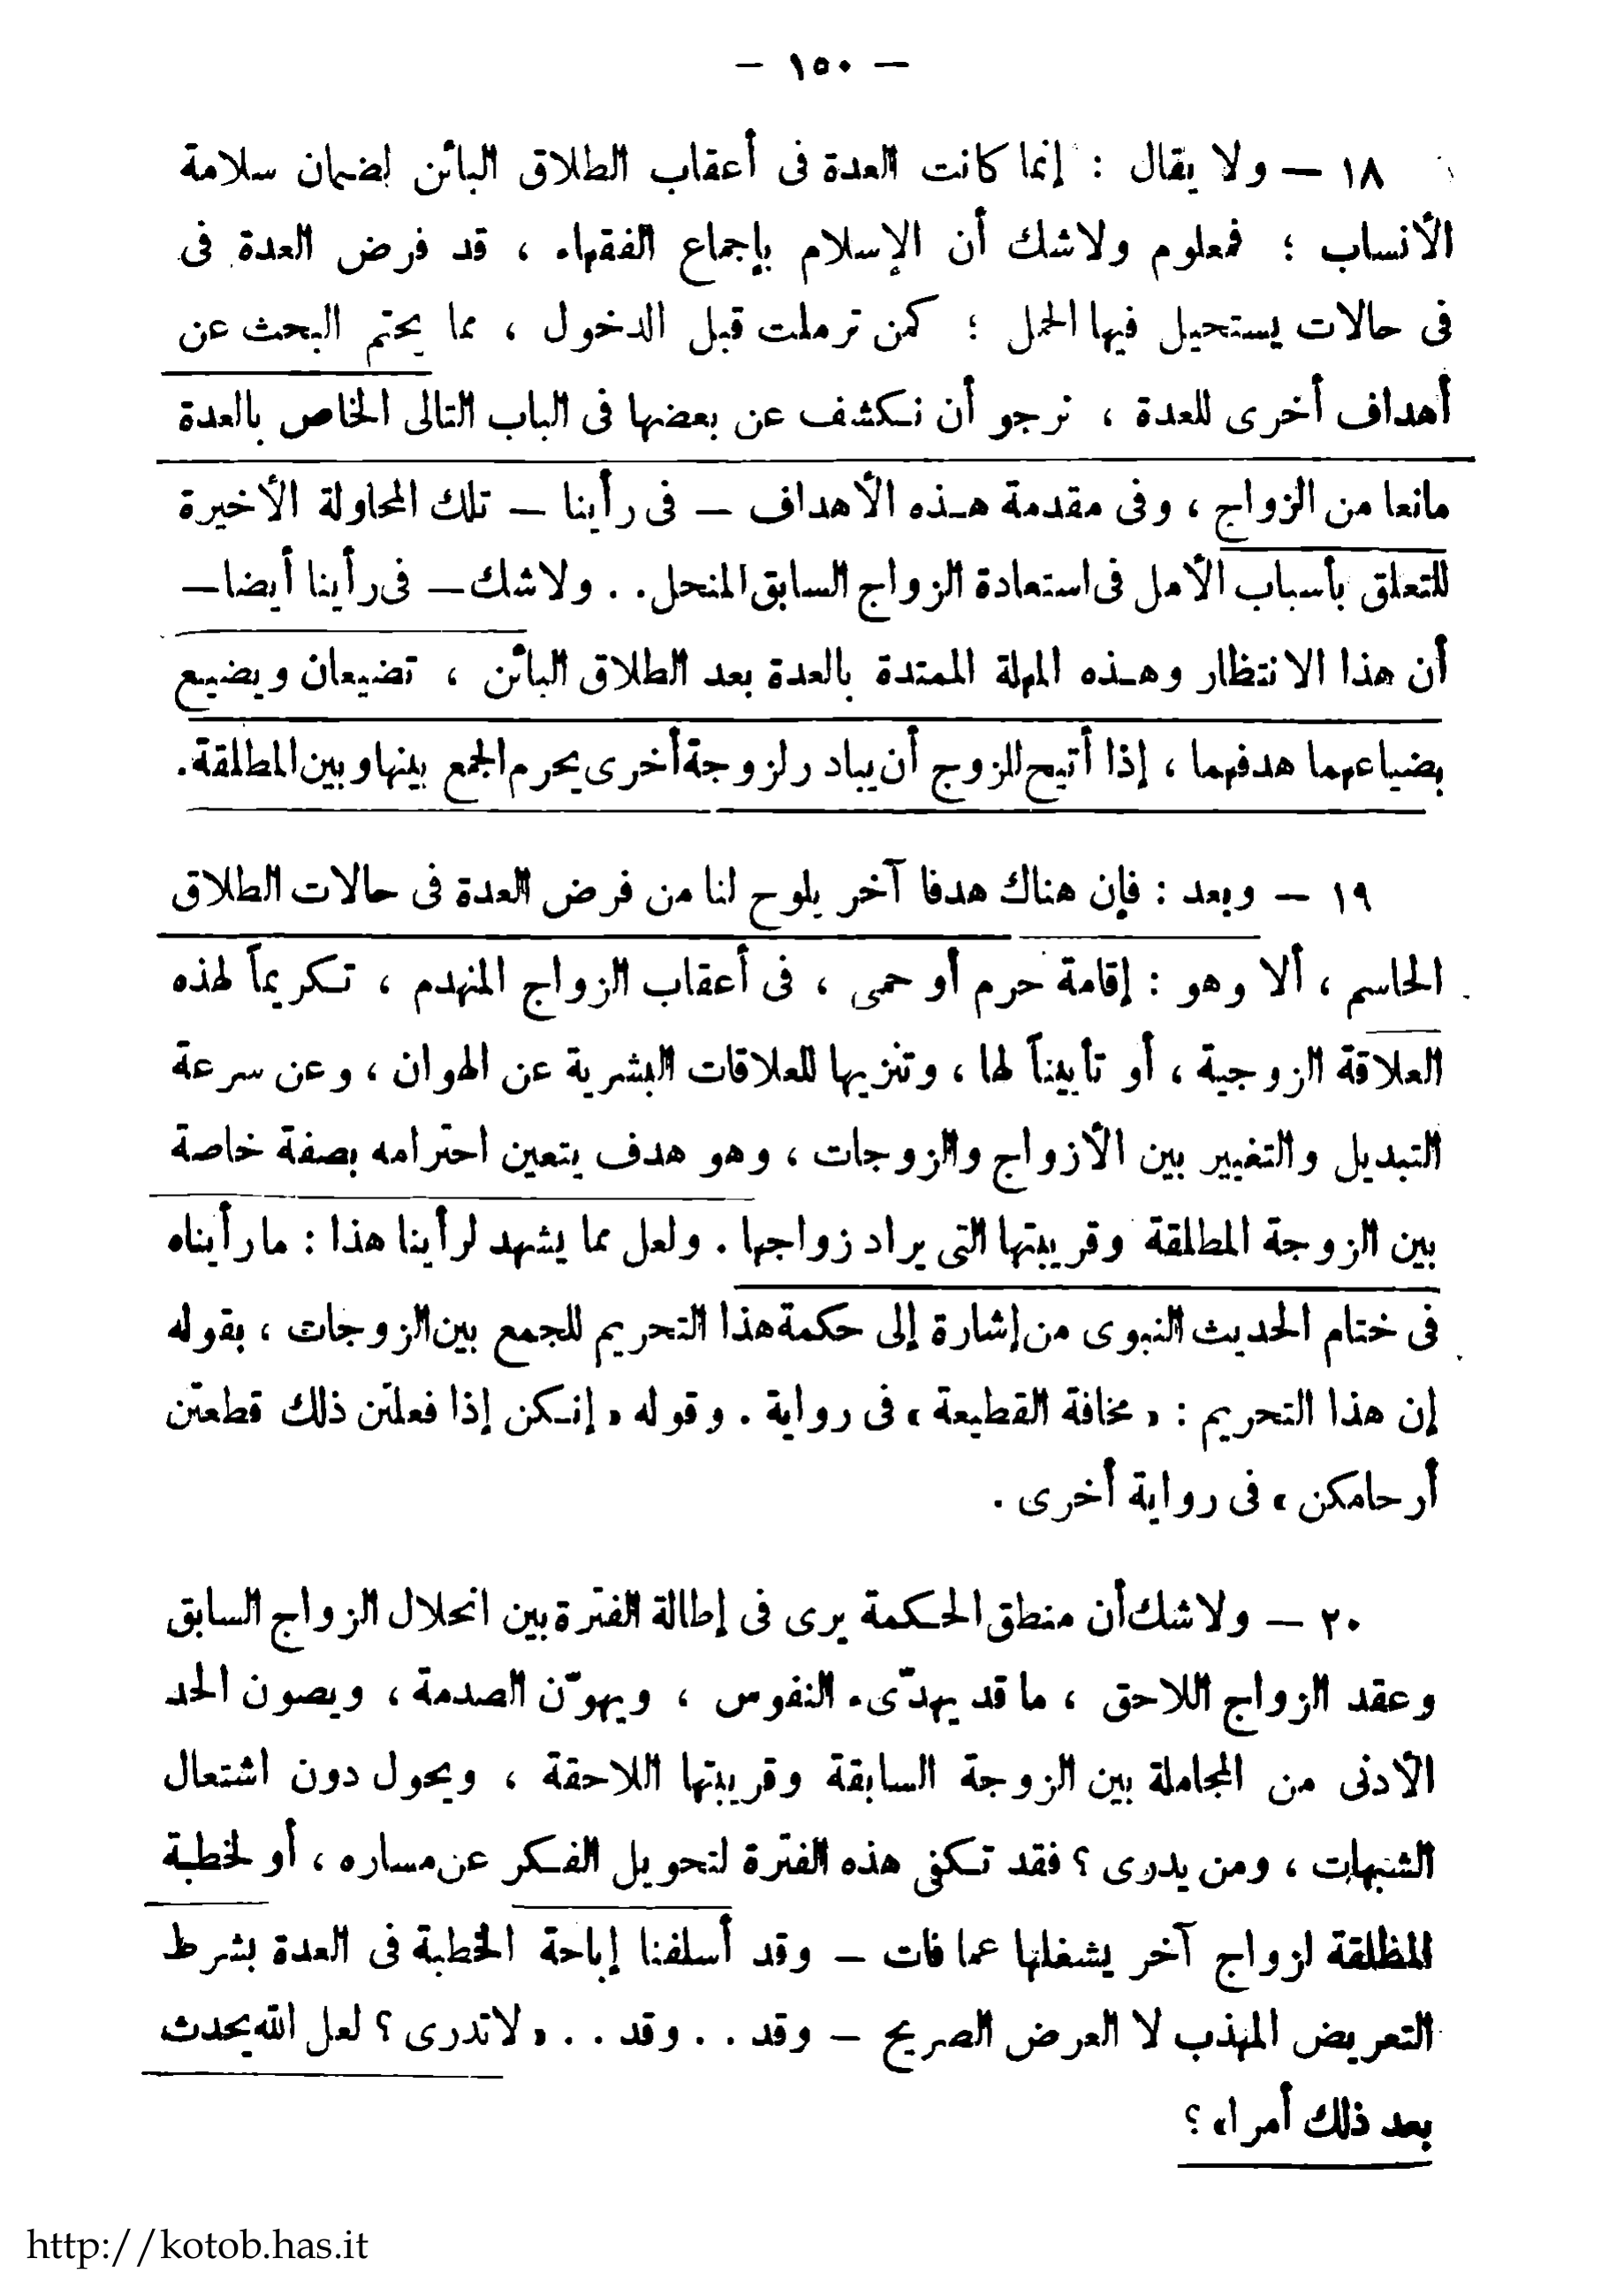 — ١٥٠ —
١٨ — ولا يقال : إنما كانت العدة فى أعقاب الطلاق البائن لضمان سلامة
الأنساب ؛ فمعلوم ولاشك أن الإسلام بإجماع الفقهاء ، قد فرض العدة فى
فى حالات يستحيل فيها الحمل ؛ كمن ترملت قبل الدخول ، مما يحتم البحث عن
أهداف أخرى للعدة ، نرجو أن نكشف عن بعضها فى الباب التالى الخاص بالعدة
مانعا من الزواج ، وفى مقدمة هذه الأهداف — فى رأينا — تلك المحاولة الأخيرة
للتعلق بأسباب الأمل فى استعادة الزواج السابق المنحل . . ولاشك — فى رأينا أيضا —
أن هذا الانتظار وهذه المهلة الممتدة بالعدة بعد الطلاق البائن ، تضيعان ويضيع
بضياعهما هدفهما ، إذا أتيح للزوج أن يبادر لزوجة أخرى يحرم الجمع بينها وبين المطلقة .
١٩ — وبعد : فإن هناك هدفا آخر يلوح لنا من فرض العدة فى حالات الطلاق
الحاسم ، ألا وهو : إقامة حرم أو حمى ، فى أعقاب الزواج المنهدم ، تكريماً لهذه
العلاقة الزوجية ، أو تأبيناً لها ، وتنزيها للعلاقات البشرية عن الهوان ، وعن سرعة
التبديل والتغيير بين الأزواج والزوجات ، وهو هدف يتعين احترامه بصفة خاصة
بين الزوجة المطلقة وقريبتها التى يراد زواجها . ولعل مما يشهد لرأينا هذا : مارأيناه
فى ختام الحديث النبوى من إشارة إلى حكمة هذا التحريم للجمع بين الزوجات ، بقوله
إن هذا التحريم : « مخافة القطيعة » فى رواية . وقوله « إنكن إذا فعلتن ذلك قطعتن
أرحامكن » فى رواية أخرى .
٢٠ — ولاشك أن منطق الحكمة يرى فى إطالة الفترة بين انحلال الزواج السابق
وعقد الزواج اللاحق ، ما قد يهدّىء النفوس ، ويهوّن الصدمة ، ويصون الحد
الأدنى من المجاملة بين الزوجة السابقة وقريبتها اللاحقة ، ويحول دون اشتعال
الشبهات ، ومن يدرى ؟ فقد تكفى هذه الفترة لتحويل الفكر عن مساره ، أو لخطبة
المطلقة لزواج آخر يشغلها عما فات — وقد أسلفنا إباحة الخطبة فى العدة بشرط
التعريض المهذب لا العرض الصريح — وقد . . وقد . . « لاتدرى ؟ لعل الله يحدث
بعد ذلك أمرا » ؟
http://kotob.has.it